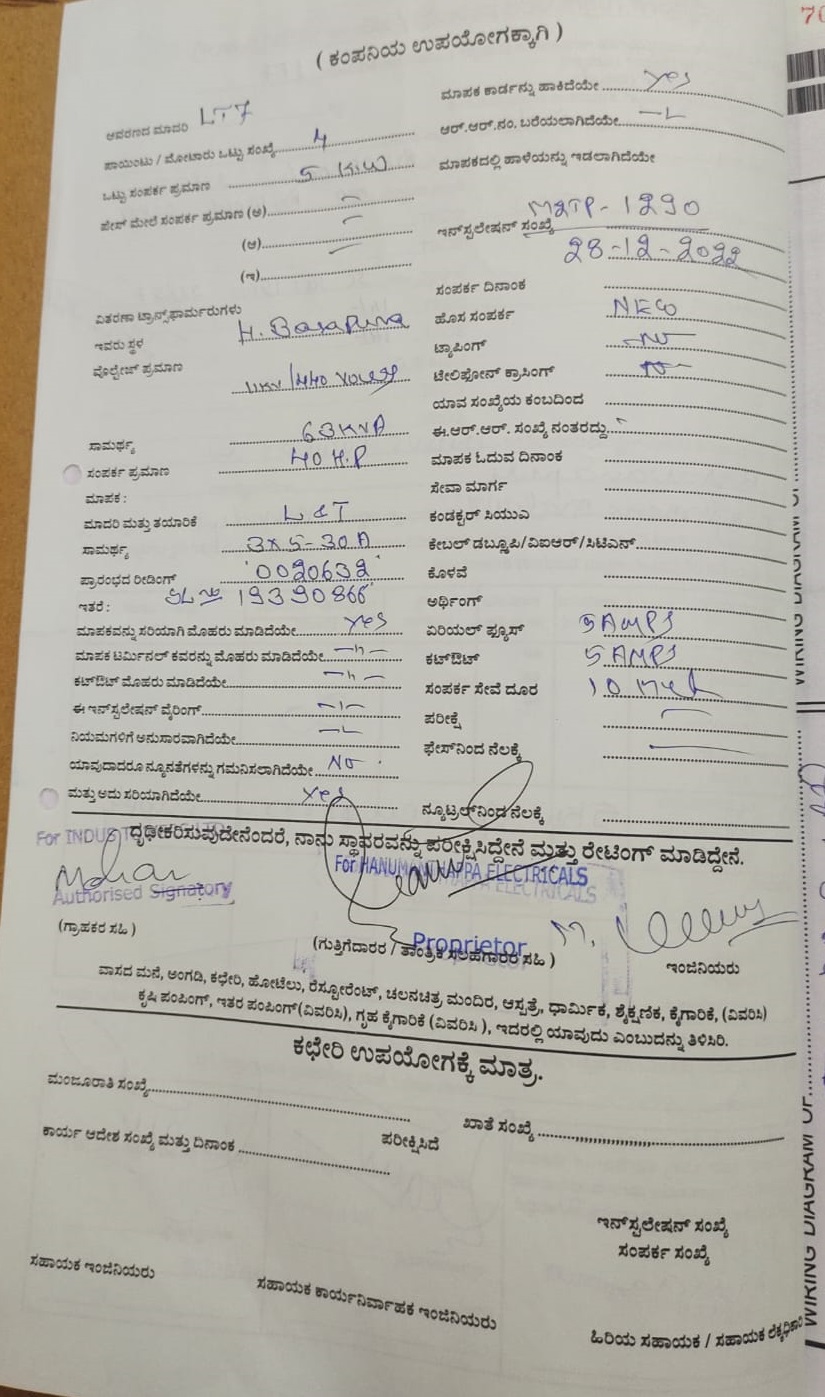 70
( ಕಂಪನಿಯ ಉಪಯೋಗಕ್ಕಾಗಿ )
ಆವರಣದ ಮಾದರಿ LT7
ಪಾಯಿಂಟು / ಮೋಟಾರು ಒಟ್ಟು ಸಂಖ್ಯೆ 4
ಒಟ್ಟು ಸಂಪರ್ಕ ಪ್ರಮಾಣ 5 KW
ಪೇಸ್ ಮೇಲೆ ಸಂಪರ್ಕ ಪ್ರಮಾಣ (ಅ)
(ಆ)
(ಇ)
ವಿತರಣಾ ಟ್ರಾನ್ಸ್‌ಫಾರ್ಮರುಗಳು
ಇವರು ಸ್ಥಳ H. Basapura
ವೊಲ್ಟೇಜ್ ಪ್ರಮಾಣ 11KV/440 Volts
ಸಾಮರ್ಥ್ಯ 63KVA
ಸಂಪರ್ಕ ಪ್ರಮಾಣ 40 H.P
ಮಾಪಕ :
ಮಾದರಿ ಮತ್ತು ತಯಾರಿಕೆ L&T
ಸಾಮರ್ಥ್ಯ 3X5-30A
ಪ್ರಾರಂಭದ ರೀಡಿಂಗ್ '0020632'
ಇತರೆ : SL No 19390866
ಮಾಪಕವನ್ನು ಸರಿಯಾಗಿ ಮೊಹರು ಮಾಡಿದೆಯೇ Yes
ಮಾಪಕ ಟರ್ಮಿನಲ್ ಕವರನ್ನು ಮೊಹರು ಮಾಡಿದೆಯೇ —n—
ಕಟ್‌ಔಟ್ ಮೊಹರು ಮಾಡಿದೆಯೇ —n—
ಈ ಇನ್‌ಸ್ಟಲೇಷನ್ ವೈರಿಂಗ್
ನಿಯಮಗಳಿಗೆ ಅನುಸಾರವಾಗಿದೆಯೇ
ಯಾವುದಾದರೂ ನ್ಯೂನತೆಗಳನ್ನು ಗಮನಿಸಲಾಗಿದೆಯೇ No
ಮತ್ತು ಅದು ಸರಿಯಾಗಿದೆಯೇ Yes
ಮಾಪಕ ಕಾರ್ಡನ್ನು ಹಾಕಿದೆಯೇ Yes
ಆರ್.ಆರ್.ನಂ. ಬರೆಯಲಾಗಿದೆಯೇ
ಮಾಪಕದಲ್ಲಿ ಹಾಳೆಯನ್ನು ಇಡಲಾಗಿದೆಯೇ
ಇನ್‌ಸ್ಟಲೇಷನ್ ಸಂಖ್ಯೆ M2TP-1290
28-12-2022
ಸಂಪರ್ಕ ದಿನಾಂಕ
ಹೊಸ ಸಂಪರ್ಕ NEW
ಟ್ಯಾಪಿಂಗ್ NO
ಟೆಲಿಫೋನ್ ಕ್ರಾಸಿಂಗ್ NO
ಯಾವ ಸಂಖ್ಯೆಯ ಕಂಬದಿಂದ
ಈ.ಆರ್.ಆರ್. ಸಂಖ್ಯೆ ನಂತರದ್ದು
ಮಾಪಕ ಓದುವ ದಿನಾಂಕ
ಸೇವಾ ಮಾರ್ಗ
ಕಂಡಕ್ಟರ್ ಸಿಯುಎ
ಕೇಬಲ್ ಡಬ್ಲ್ಯೂಪಿ/ವಿಐಆರ್/ಸಿಟಿಎಸ್
ಕೊಳವೆ
ಅರ್ಥಿಂಗ್
ಏರಿಯಲ್ ಫ್ಯೂಸ್ 5 AMPS
ಕಟ್‌ಔಟ್ 5 AMPS
ಸಂಪರ್ಕ ಸೇವೆ ದೂರ 10 Met
ಪರೀಕ್ಷೆ
ಫೇಸ್‌ನಿಂದ ನೆಲಕ್ಕೆ
ನ್ಯೂಟ್ರಲ್‌ನಿಂದ ನೆಲಕ್ಕೆ
ದೃಢೀಕರಿಸುವುದೇನೆಂದರೆ, ನಾನು ಸ್ಥಾವರವನ್ನು ಪರೀಕ್ಷಿಸಿದ್ದೇನೆ ಮತ್ತು ರೇಟಿಂಗ್ ಮಾಡಿದ್ದೇನೆ.
For INDUS
For HANUMANTHAPPA ELECTRICALS
Mohan
Authorised Signatory
Proprietor
(ಗ್ರಾಹಕರ ಸಹಿ )
(ಗುತ್ತಿಗೆದಾರರ / ತಾಂತ್ರಿಕ ಸಲಹೆಗಾರರ ಸಹಿ )
ಇಂಜಿನಿಯರು
ವಾಸದ ಮನೆ, ಅಂಗಡಿ, ಕಛೇರಿ, ಹೋಟೆಲು, ರೆಸ್ಟೋರೆಂಟ್, ಚಲನಚಿತ್ರ ಮಂದಿರ, ಆಸ್ಪತ್ರೆ, ಧಾರ್ಮಿಕ, ಶೈಕ್ಷಣಿಕ, ಕೈಗಾರಿಕೆ, (ವಿವರಿಸಿ)
ಕೃಷಿ ಪಂಪಿಂಗ್, ಇತರ ಪಂಪಿಂಗ್(ವಿವರಿಸಿ), ಗೃಹ ಕೈಗಾರಿಕೆ (ವಿವರಿಸಿ ), ಇದರಲ್ಲಿ ಯಾವುದು ಎಂಬುದನ್ನು ತಿಳಿಸಿರಿ.
ಕಛೇರಿ ಉಪಯೋಗಕ್ಕೆ ಮಾತ್ರ.
ಮಂಜೂರಾತಿ ಸಂಖ್ಯೆ
ಖಾತೆ ಸಂಖ್ಯೆ
ಕಾರ್ಯ ಆದೇಶ ಸಂಖ್ಯೆ ಮತ್ತು ದಿನಾಂಕ
ಪರೀಕ್ಷಿಸಿದೆ
ಇನ್‌ಸ್ಟಲೇಷನ್ ಸಂಖ್ಯೆ
ಸಂಪರ್ಕ ಸಂಖ್ಯೆ
ಸಹಾಯಕ ಇಂಜಿನಿಯರು
ಸಹಾಯಕ ಕಾರ್ಯನಿರ್ವಾಹಕ ಇಂಜಿನಿಯರು
ಹಿರಿಯ ಸಹಾಯಕ / ಸಹಾಯಕ ಲೆಕ್ಕಾಧಿಕಾರಿ
WIRING DIAGRAM OF
WIRING DIAGRAM OF